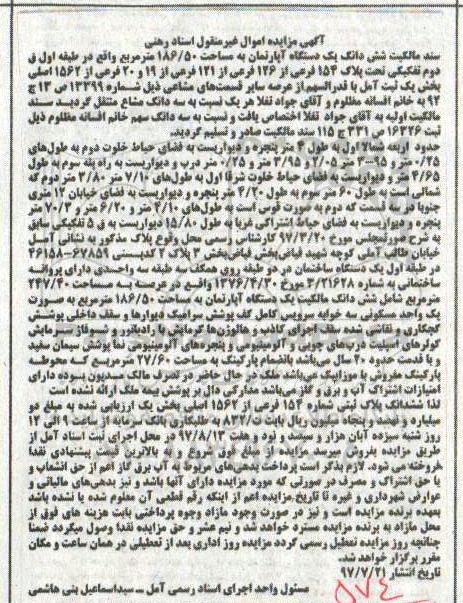 آگهی مزایده اموال غیرمنقول اسناد رهنی
سند مالکیت شش دانگ یک دستگاه آپارتمان به مساحت ۱۸۶/۵۰ مترمربع واقع در طبقه اول ق
دوم تفکیکی تحت پلاک ۱۵۴ فرعی از ۱۲۶ فرعی از ۱۲۱ فرعی از ۱۹ و ۲۰ فرعی از ۱۵۶۲ اصلی
بخش یک ثبت آمل با قدرالسهم از عرصه سایر قسمت‌های مشاعی ذیل شماره ۱۳۳۹۹ ص ۱۳ ج
۹۲ به خانم افسانه مظلوم و آقای جواد تقلا هر یک نسبت به سه دانگ مشاع منتقل گردید سند
مالکیت اولیه به آقای جواد تقلا اختصاص یافت و نسبت به سه دانگ سهم خانم افسانه مظلوم ذیل
ثبت ۱۶۳۲۶ ص ۳۳۱ ج ۱۱۵ سند مالکیت صادر و تسلیم گردید.
حدود اربعه شمالا اول به طول ۴ متر پنجره و دیواریست به فضای حیاط خلوت دوم به طول‌های
۰/۲۵ متر و ۳/۹۵ متر و ۲/۰۵ متر و ۳/۹۵ متر و ۰/۲۵ متر درب و دیواریست به راه پله سوم به طول
۴/۶۵ متر پنجره و دیواریست به فضای حیاط خلوت شرقا اول به طول‌های ۷/۱۰ متر ۲/۸۰ متر دوم که
شمالی است به طول ۶۰ سوم به طول ۴/۲۰ متر پنجره و دیواریست به فضای خیابان ۱۲ متری
جنوبا اول که دوم به صورت قوس است به طول‌های ۴/۱۰ متر و ۶/۲۰ متر و ۷۰/۳ متر
پنجره و دیواریست به فضای حیاط اشتراکی غربا به طول ۱۵/۸۰ دیواریست به ق ۵ تفکیکی سابق
به شرح صورتمجلس مورخ ۹۷/۳/۲۰ کارشناس رسمی محل وقوع پلاک مذکور به نشانی آمل
خیابان طالب آملی کوچه شهید فیاض‌بخش فیاض‌بخش ۳ پلاک ۲ کدپستی ۶۷۸۵۹-۴۶۱۵۸
در طبقه اول یک دستگاه ساختمان در دو طبقه روی همکف سه طبقه سه واحدی دارای پروانه
ساختمانی به شماره ۳/۲۱۶۲۸ مورخ ۱۳۷۶/۴/۳۰ واقع در عرصه به مساحت ۲۴۷/۴۰
مترمربع شامل شش دانگ مالکیت یک دستگاه آپارتمان به مساحت ۱۸۶/۵۰ مترمربع به صورت
یک واحد مسکونی سه خوابه سرویس کامل کف پوشش سرامیک دیوارها و سقف داخلی پوشش
گچکاری و نقاشی شده سقف اجرای کاذب و هالوژن‌ها گرمایش با رادیاتور و شوفاژ سرمایش
کولرهای اسپلیت درب‌های چوبی و آلومینیومی و پنجره‌های آلومینیومی نما پوشش سیمان سفید
و با قدمت حدود ۲۰ سال می‌باشد بانضمام پارکینگ به مساحت ۲۷/۶۰ مترمربع که محوطه
پارکینگ مفروش با موزاییک می‌باشد ملک در حال حاضر بر تصرف مالک مدیون بوده دارای
امتیازات اشتراک آب و برق و گاز می‌باشد معمارگی دال بر پوشش بیمه ملک ارائه نشده است
لذا ششدانگ پلاک ثبتی شماره ۱۵۴ فرعی از ۱۵۶۲ اصلی بخش یک ارزیابی شده به مبلغ دو
میلیارد و نهصد و پنجاه میلیون ریال بابت ث/۸۲۷ به طلبکاری بانک سرمایه از ساعت ۹ الی ۱۲
روز شنبه سیزده آبان هزار و سیصد و نود و هفت ۹۷/۸/۱۳ در محل اجرای ثبت اسناد آمل از
طریق مزایده بفروش میرسد مزایده از مبلغ فوق شروع و به بالاترین قیمت پیشنهادی نقدا
فروخته می شود. لازم بذکر است پرداخت بدهی‌های مربوط به آب برق گاز اعم از حق انشعاب و
یا حق اشتراک و مصرف در صورتی که مورد مزایده دارای آنها باشد و نیز بدهی‌های مالیاتی و
عوارض شهرداری و غیره تا تاریخ مزایده اعم از اینکه رقم قطعی آن معلوم شده یا نشده باشد
بعهده برنده مزایده است و نیز در صورت وجود مازاد وجوه پرداختی بابت هزینه های فوق از
محل مازاد به برنده مزایده مسترد خواهد شد و نیم عشر و حق مزایده نقدا وصول میگردد ضمنا
چنانچه روز مزایده تعطیل رسمی گردد مزایده روز اداری بعد از تعطیلی در همان ساعت و مکان
مقرر برگزار خواهد شد.
تاریخ انتشار ۹۷/۷/۲۱
مسئول واحد اجرای اسناد رسمی آمل – سیداسماعیل بنی هاشمی
۵۷۴